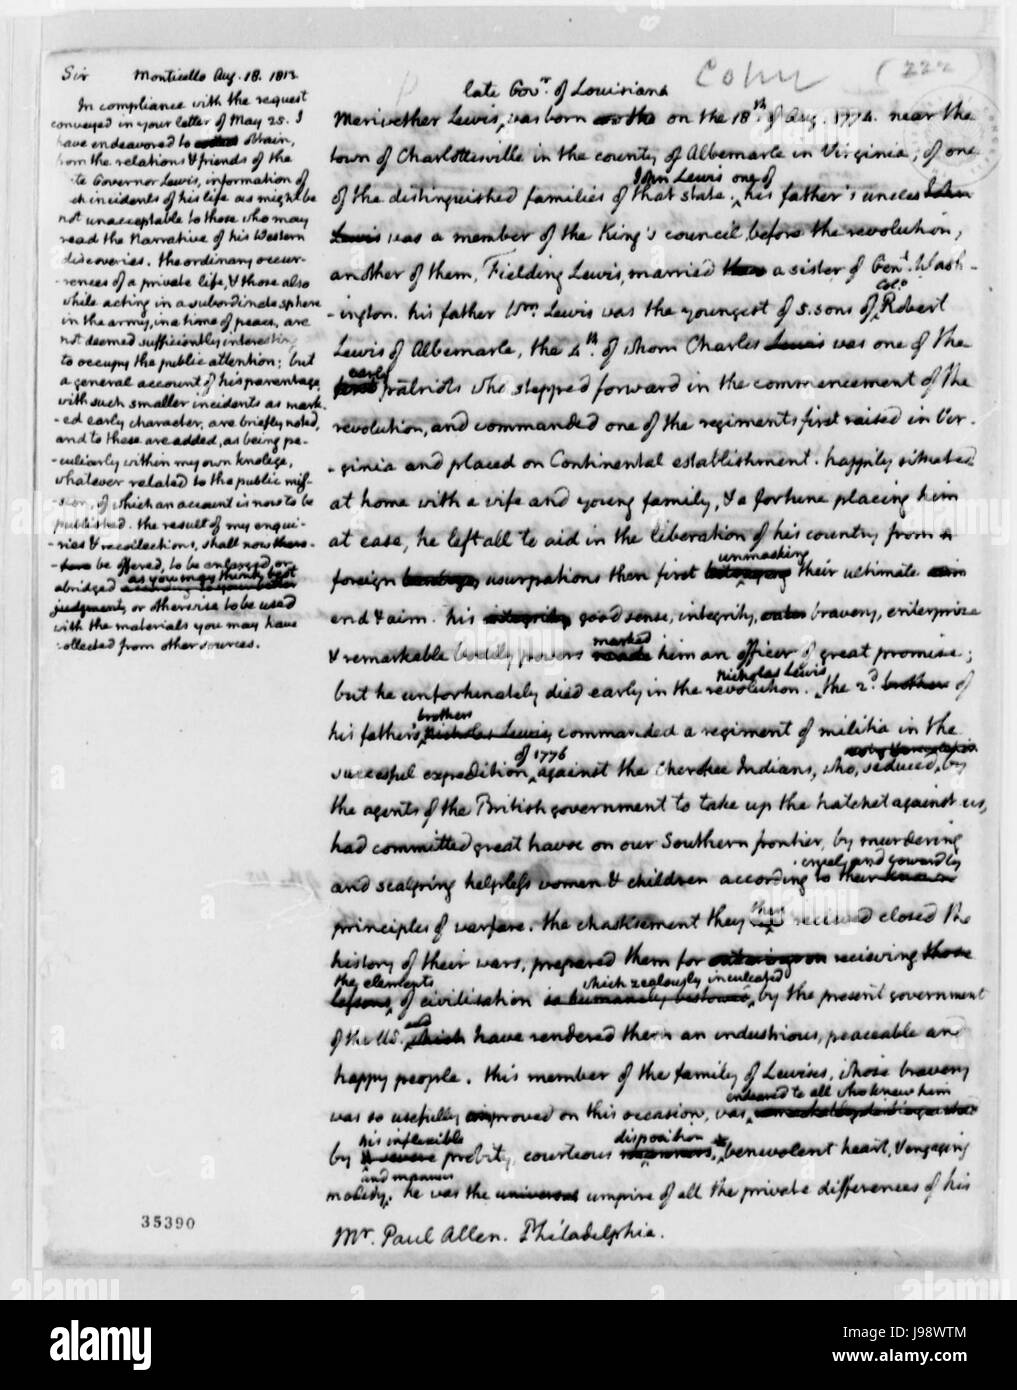 Sir Monticello Aug. 18. 1813
In compliance with the request
conveyed in your letter of May 25. I
have endeavored to obtain,
from the relations & friends of the
te Governor Lewis, information of
ch incidents of his life as might be
not unacceptable to those who may
read the Narrative of his Western
discoveries. the ordinary occur-
-rences of a private life, & those also
while acting in a subordinate sphere
in the army, in a time of peace, are
not deemed sufficiently interesting
to occupy the public attention; but
a general account of his parentage,
with such smaller incidents as mark-
-ed early character, are briefly noted,
and to these are added, as being pe-
-culiarly within my own knolege,
whatever related to the public mis-
-sion, of which an account is now to be
published. the result of my enqui-
-ries & recollections, shall now there-
-fore be offered, to be enlarged or
as you may think best
abridged according to your better
judgment, or otherwise to be used
with the materials you may have
collected from other sources.
Copy
(222
late Govr. of Louisiana
Meriwether Lewis, was born on the on the 18th. of Aug. 1774. near the
town of Charlottesville in the county of Albemarle in Virginia, of one
John Lewis one of
of the distinguished families of that state. his father's uncles John
Lewis was a member of the King's council, before the revolution,
another of them, Fielding Lewis, married a sister of Genl. Wash-
-ington. his father Wm. Lewis was the youngest of 5. sons of Colo. Robert
Lewis of Albemarle, the 4th. of whom Charles Lewis was one of the
early
first patriots who stepped forward in the commencement of the
revolution, and commanded one of the regiments first raised in Vir-
-ginia and placed on Continental establishment. happily situated
at home with a wife and young family, & a fortune placing him
at ease, he left all to aid in the liberation of his country from
unmasking
foreign usurpations then first their ultimate aim
end & aim. his integrity good sense, integrity, bravery, enterprize
marked
& remarkable bodily powers made him an officer of great promise;
Nicholas Lewis
but he unfortunately died early in the revolution. the 2d. brother of
brothers
his father's Nicholas Lewis, commanded a regiment of militia in the
of 1776
succesful expedition, against the Cherokee Indians, who, seduced, by
the agents of the British government to take up the hatchet against us,
had committed great havoc on our Southern frontier, by murdering
cruely and cowardly
and scalping helpless women & children according to their known
principles of warfare. the chastisement they then recieved closed the
history of their wars, prepared them for recieving those
the elements which zealously inculcated
lessons, of civilisation so humanely bestowed, by the present government
and
of the US. which have rendered them an industrious, peaceable and
happy people. this member of the family of Lewises, whose bravery
indeared to all who knew him
was so usefully improved on this occasion, was
his inflexible disposition
by a severe probity, courteous manners, benevolent heart, & engaging
and manners
modesty, he was the universal umpire of all the private differences of his
35390
Mr. Paul Allen. Philadelphia.
alamy
alamy
Image ID: J98WTM
www.alamy.com